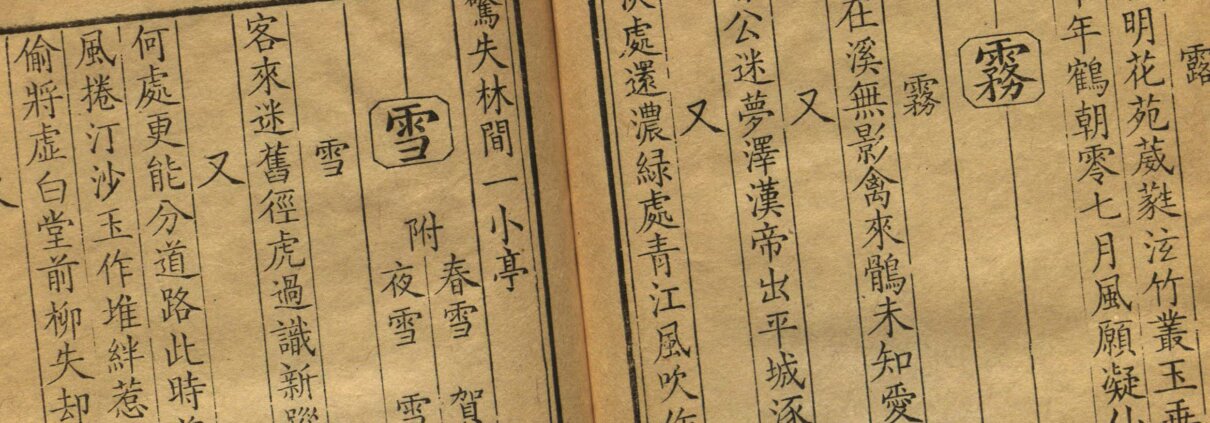 露
明花苑葳蕤泫竹叢玉垂
年鶴朝零七月風願凝
霧
霧
在溪無影禽來鶻未知愛
又
公迷夢澤漢帝出平城逐
又
處還濃緑處青江風吹作
驚失林間一小亭
雪 附
春雪 賀
夜雪 雪
雪
客來迷舊徑虎過識新蹤
又
何處更能分道路此時
風捲汀沙玉作堆絆惹
偷將虛白堂前柳失却